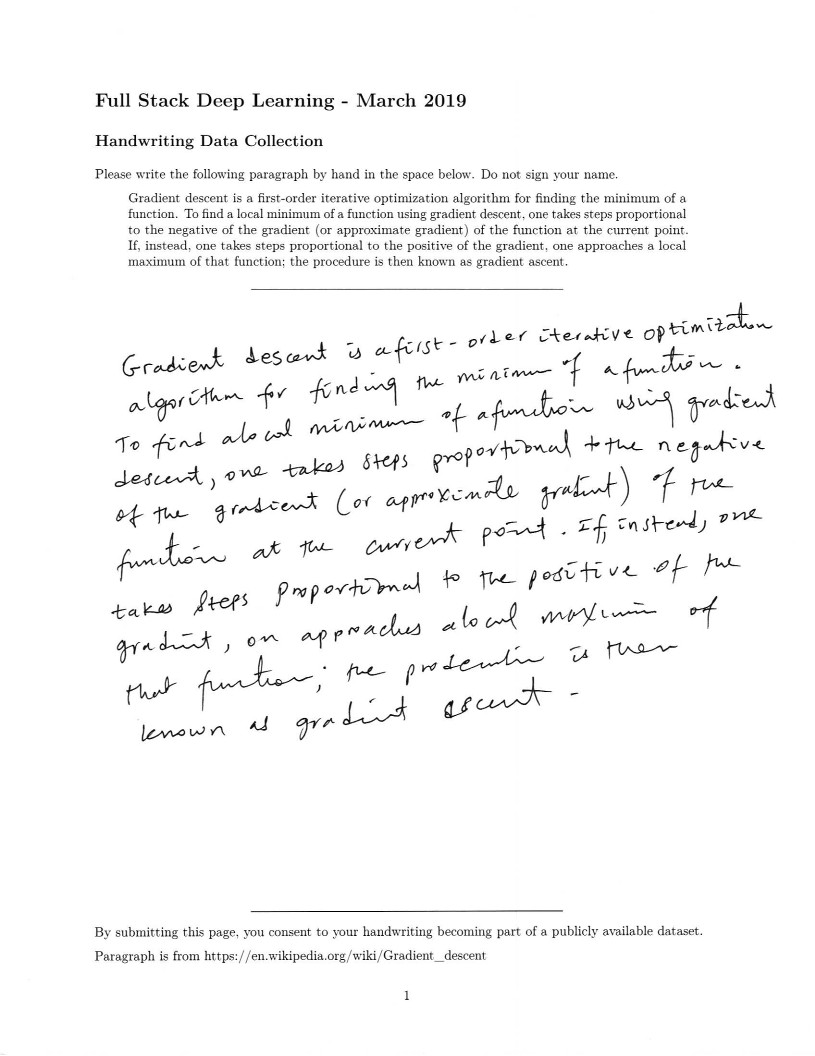 Full Stack Deep Learning - March 2019
Handwriting Data Collection
Please write the following paragraph by hand in the space below. Do not sign your name.
Gradient descent is a first-order iterative optimization algorithm for finding the minimum of a
function. To find a local minimum of a function using gradient descent, one takes steps proportional
to the negative of the gradient (or approximate gradient) of the function at the current point.
If, instead, one takes steps proportional to the positive of the gradient, one approaches a local
maximum of that function; the procedure is then known as gradient ascent.
Gradient descent is a first-order iterative optimization
algorithm for finding the minimum of a function.
To find a local minimum of a function using gradient
descent, one takes steps proportional to the negative
of the gradient (or approximate gradint) of the
function at the current point. If, instead, one
takes steps proportional to the positive of the
gradint, on approaches a local maximum of
that function; the is then
known as gradint ascent.
By submitting this page, you consent to your handwriting becoming part of a publicly available dataset.
Paragraph is from https://en.wikipedia.org/wiki/Gradient_descent
1